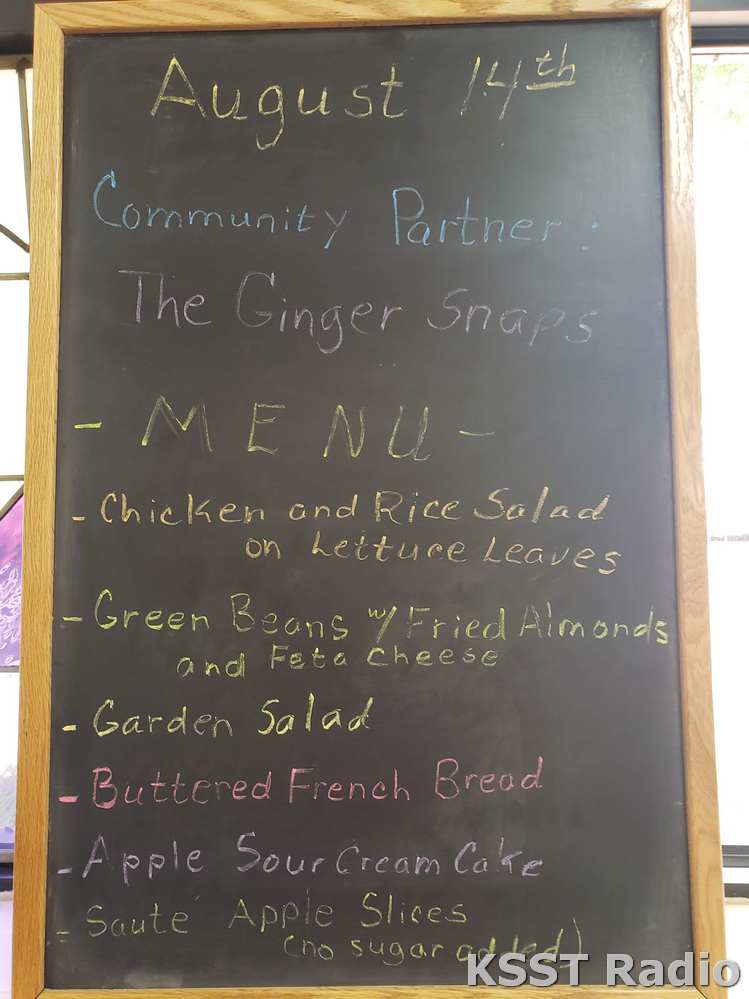 August 14th
Community Partner:
The Ginger Snaps
- MENU -
- Chicken and Rice Salad
on Lettuce Leaves
- Green Beans w/ Fried Almonds
and Feta Cheese
- Garden Salad
- Buttered French Bread
- Apple Sour Cream Cake
- Sauté Apple Slices
(no sugar added)
KSST Radio